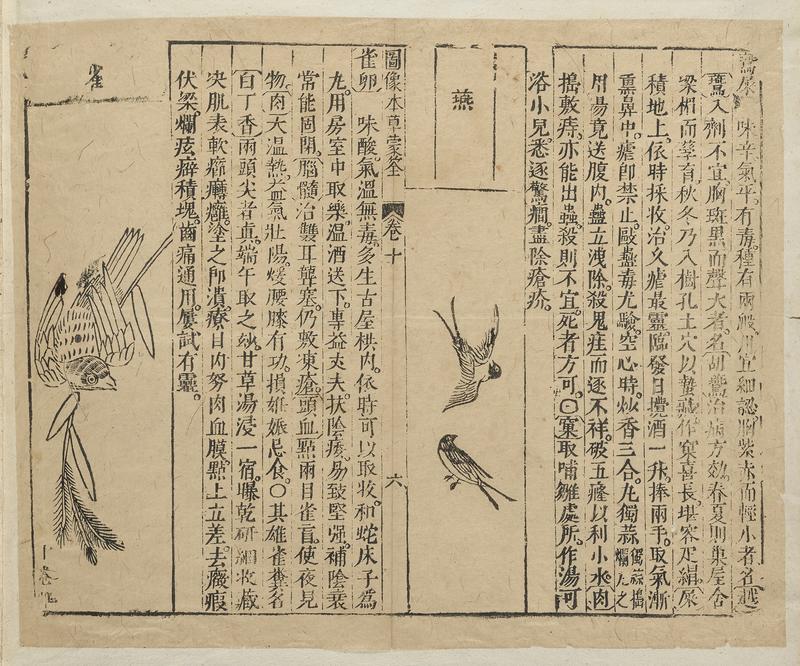 燕
鷰屎 味辛氣平有毒種有兩般用宜細認胸紫赤而輕小者名越
鷰入劑不宜胸斑黑而聲大者名胡鷰治病方効春夏則巢屋舍
梁楣而孳育秋冬乃入樹孔土穴以蟄藏作窠喜長堪容疋絹屎
積地上依時採收治久瘧最靈臨發日攪酒一升捧兩手取氣漸
熏鼻中瘧即禁止敺蠱毒尤驗空心時炒香三合丸獨蒜獨蒜搗爛丸之
用湯竟送腹內蠱立洩除殺鬼疰而逐不祥破五癃以利小水肉
搗敷痔亦能出蟲殺則不宜死者方可〇窠取哺雛處所作湯可
浴小兒悉逐驚癇盡除瘡疥
圖像本草蒙筌 卷十 六
雀卵 味酸氣溫無毒多生古屋栱內依時可以取收和蛇床子為
丸用房室中取樂溫酒送下專益丈夫扶陰痿易致堅强補陰衰
常能固閉腦髓治雙耳聾塞仍敷凍瘡頭血點兩目雀盲使夜見
物肉大溫熱益氣壯陽煖腰膝有功損妊娠忌食〇其雄雀糞名
白丁香兩頭尖者眞端午取之妙甘草湯浸一宿曝乾研細收藏
決肌表軟癤癰癰塗之即潰療目內努肉血膜點上立差去癥瘕
伏梁爛痃癖積塊齒痛通用屢試有靈
雀